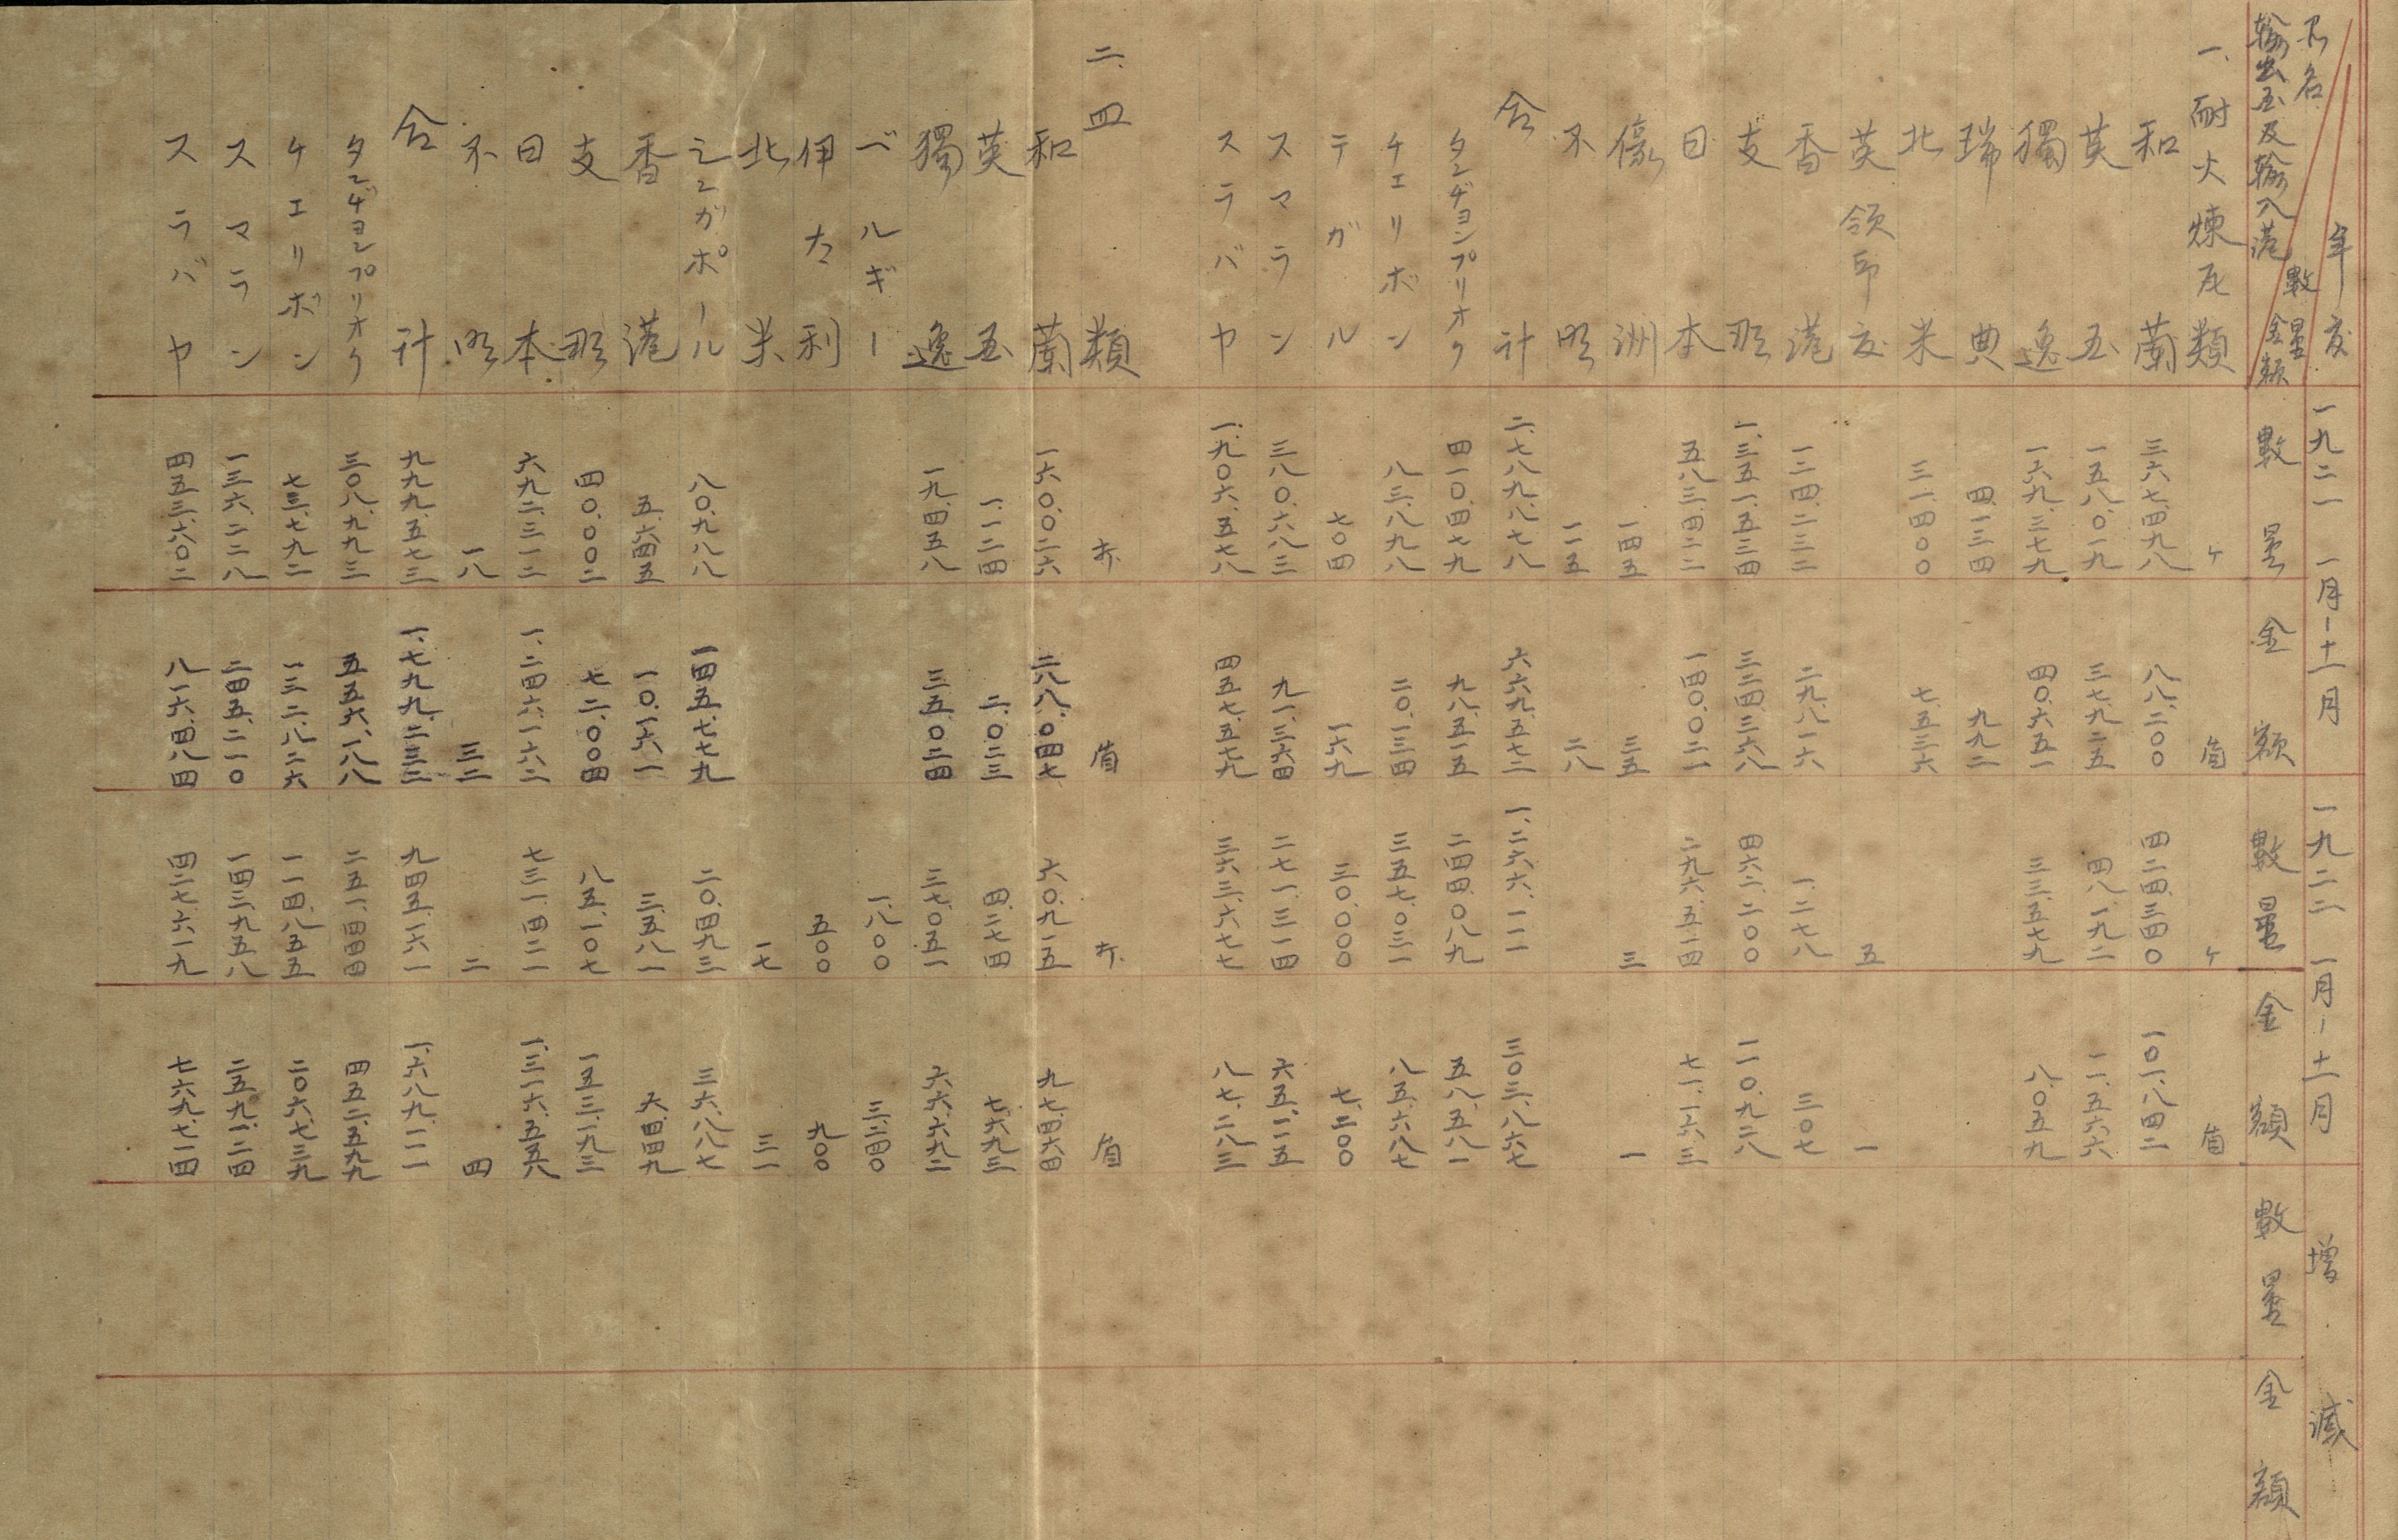 年度 一九二一 一月ー十一月 一九二二 一月ー十一月 增減
品名 輸出国及輸入港 數量 金額 數量 金額 數量 金額 數量 金額
一、耐火煉瓦類 ケ 盾 ケ 盾
和蘭 三六七、四九八 八八、二〇〇 四二四、三四〇 一〇一、八四二
英国 一五八、〇一九 三七、九二五 四八、一九二 一一、五六六
獨逸 一六九、三七九 四〇、六五一 三三、五七九 八、〇五九
瑞典 四、一三四 九九二
北米 三一、四〇〇 七、五三六
英領印度 五 一
香港 一二四、二三二 二九、八一六 一、二七八 三〇七
支那 一、三五一、五三四 三二四、三六八 四六二、二〇〇 一一〇、九二八
日本 五八三、四二二 一四〇、〇二一 二九六、五一四 七一、一六三
濠洲 一四五 三五 三 一
不明 一一五 二八
合計 二、七八九、八七八 六六九、五七二 一、二六六、一一一 三〇三、八六七
タンヂヨンプリオク 四一〇、四七九 九八、五一五 二四四、〇八九 五八、五八一
チエリボン 八三、八九八 二〇、一三四 三五七、〇三一 八五、六八七
テガル 七〇四 一六九 三〇、〇〇〇 七、二〇〇
スマラン 三八〇、六八三 九一、三六四 二七一、三一四 六五、一一五
スラバヤ 一、九〇六、五七八 四五七、五七九 三六三、六七七 八七、二八三
二、皿類 キ 盾 キ 盾
和蘭 一六〇、〇二六 二八八、〇四七 六〇、九一五 九七、四六四
英国 一、一二四 二、〇二三 四、二七四 七、六九三
獨逸 一九、四五八 三五、〇二四 三七、〇五一 六六、六九二
ベルギー 一、八〇〇 三、二四〇
伊太利 五〇〇 九〇〇
北米 一七 三一
シンガポール 八〇、九八八 一四五、七七九 二〇、四九三 三六、八八七
香港 五、六四五 一〇、一六一 三、五八一 六、四四九
支那 四〇、〇〇二 七二、〇〇四 八五、一〇七 一五三、一九三
日本 六九二、三一二 一、二四六、一六二 七三一、四二一 一、三一六、五五八
不明 一八 三二 二 四
合計 九九九、五七三 一、七九九、二三二 九四五、一六一 一、六八九、一一一
タンヂヨンプリオク 三〇八、九九三 五五六、一八八 二五一、四四四 四五二、五九九
チエリボン 七三、七九二 一三二、八二六 一一四、八五五 二〇六、七三九
スマラン 一三六、二二八 二四五、二一〇 一四三、九五八 二五九、一二四
スラバヤ 四五三、六〇二 八一六、四八四 四二七、六一九 七六九、七一四